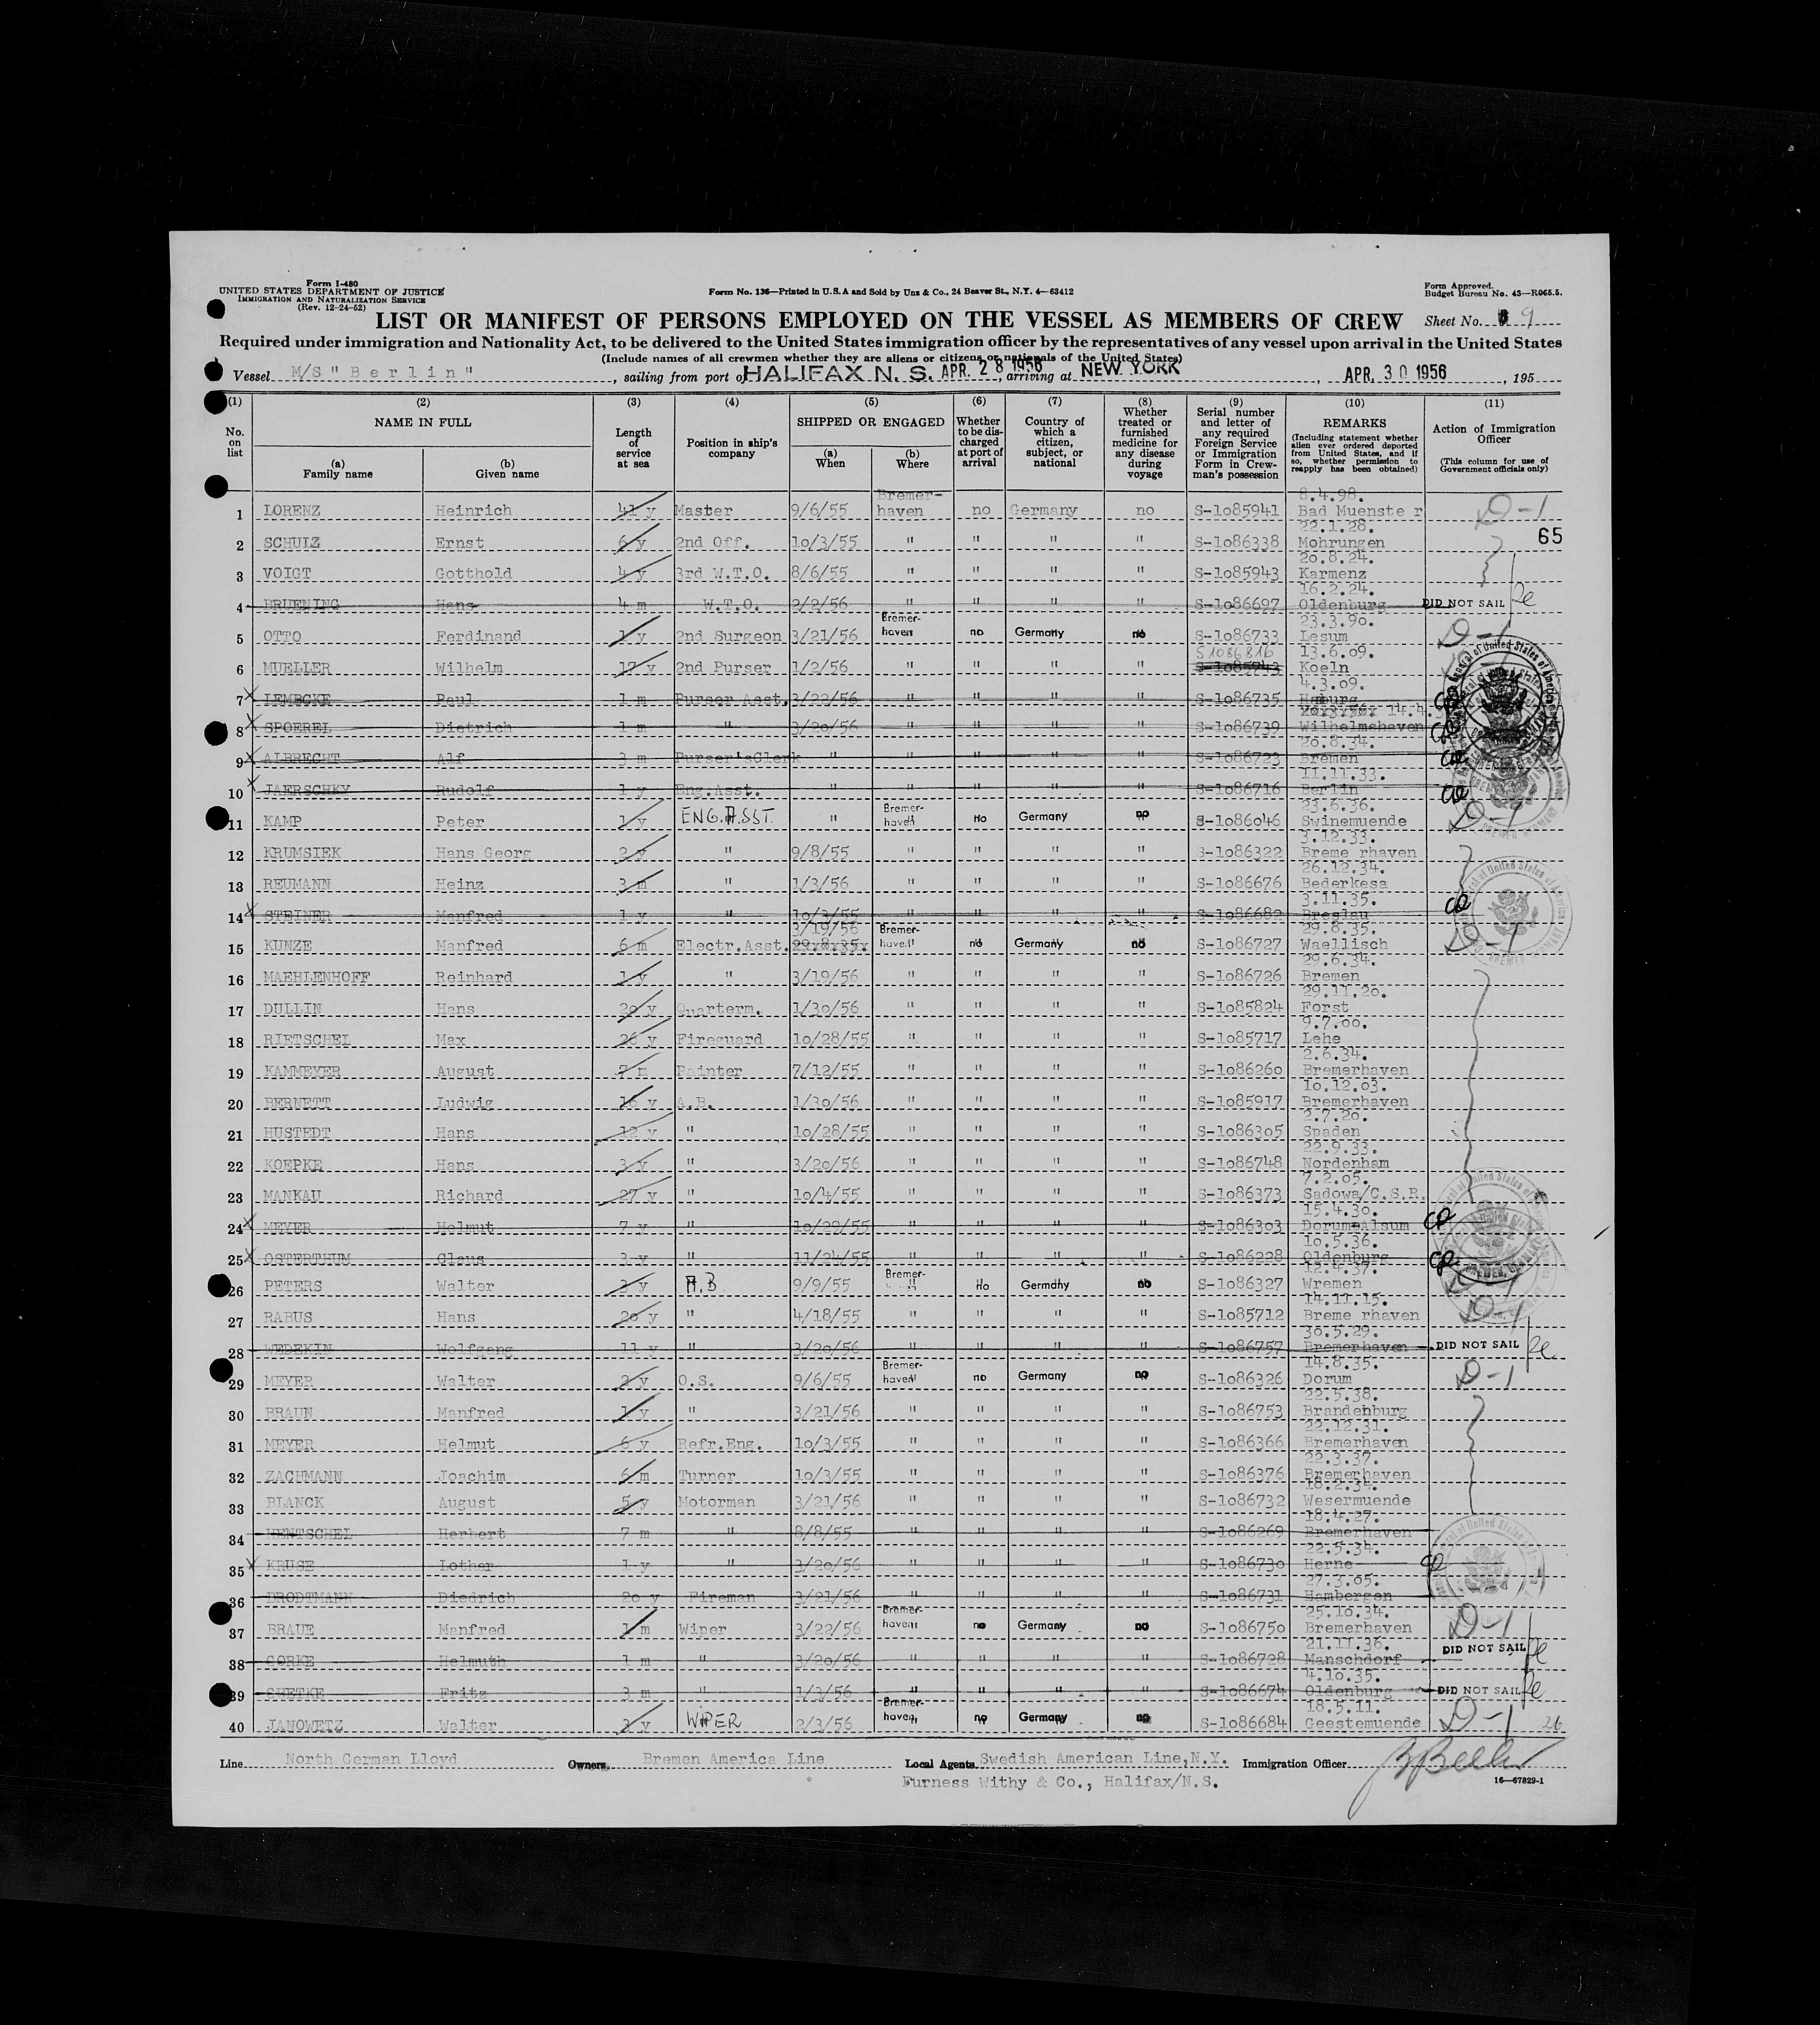 Form I-480
UNITED STATES DEPARTMENT OF JUSTICE
IMMIGRATION AND NATURALIZATION SERVICE
(Rev. 12-24-52)
Form No. 136—Printed in U.S.A and Sold by Unz & Co., 24 Beaver St., N.Y. 4—63412
Form Approved.
Budget Bureau No. 43—R065.5.
LIST OR MANIFEST OF PERSONS EMPLOYED ON THE VESSEL AS MEMBERS OF CREW
Sheet No. 9
Required under immigration and Nationality Act, to be delivered to the United States immigration officer by the representatives of any vessel upon arrival in the United States
(Include names of all crewmen whether they are aliens or citizens or nationals of the United States)
Vessel M/S "Berlin", sailing from port of HALIFAX N. S. APR. 28 1956, arriving at NEW YORK, APR. 30 1956, 195
(1) No. on list
(2) NAME IN FULL (a) Family name (b) Given name
(3) Length of service at sea
(4) Position in ship's company
(5) SHIPPED OR ENGAGED (a) When (b) Where
(6) Whether to be discharged at port of arrival
(7) Country of which a citizen, subject, or national
(8) Whether treated or furnished medicine for any disease during voyage
(9) Serial number and letter of any required Foreign Service or Immigration Form in Crewman's possession
(10) REMARKS (Including statement whether alien ever ordered deported from United States, and if so, whether permission to reapply has been obtained)
(11) Action of Immigration Officer (This column for use of Government officials only)
1 LORENZ Heinrich 41 y Master 9/6/55 Bremerhaven no Germany no S-1085941 8.4.98. Bad Muenster D-1
65
2 SCHULZ Ernst 6 y 2nd Off. 10/3/55 " " " " S-1086338 22.1.28. Mohrungen
3 VOIGT Gotthold 4 y 3rd W.T.O. 8/6/55 " " " " S-1085943 20.8.24. Karmenz
4 BRUENING Hans 4 m W.T.O. 2/2/56 " " " " S-1086697 16.2.24. Oldenburg DID NOT SAIL
5 OTTO Ferdinand 1 y 2nd Surgeon 3/21/56 Bremerhaven no Germany no S-1086733 23.3.90. Lesum D-1
6 MUELLER Wilhelm 17 y 2nd Purser 1/2/56 " " " " S1086816 S-1085743 13.6.09. Koeln
7 LEMBCKE Paul 1 m Purser Asst. 3/22/56 " " " " S-1086735 4.3.09.
8 SPOEREL Dietrich 1 m " 3/20/56 " " " " S-1086739 Wilhelmshaven
9 ALBRECHT Alf 3 m Purser'sClerk " " " " " S-1086723 20.8.34. Bremen
10 JAERSCHKY Rudolf 1 y Eng.Asst. " " " " " S-1086716 11.11.33. Berlin
11 KAMP Peter 1 y ENG.ASST. " Bremerhaven no Germany no S-1086046 23.6.36. Swinemuende D-1
12 KRUMSIEK Hans Georg 2 y " 9/8/55 " " " " S-1086322 3.12.33. Breme rhaven
13 REUMANN Heinz 3 m " 1/3/56 " " " " S-1086676 26.12.34. Bederkesa
14 STEINER Manfred 1 y " 10/3/55 " " " " S-1086682 3.11.35. Breslau
15 KUNZE Manfred 6 m Electr.Asst. 3/19/56 Bremerhaven no Germany no S-1086727 29.8.35. Waellisch D-1
16 MAEHLENHOFF Reinhard 1 y " 3/19/56 " " " " S-1086726 29.6.34. Bremen
17 DULLIN Hans 20 y Quarterm. 1/30/56 " " " " S-1085824 29.11.20. Forst
18 RIETSCHEL Max 26 y Fireguard 10/28/55 " " " " S-1085717 9.7.00. Lehe
19 KAMMEYER August 7 m Painter 7/12/55 " " " " S-1086260 2.6.34. Bremerhaven
20 BERNETT Ludwig 16 y A.B. 1/30/56 " " " " S-1085917 10.12.03. Bremerhaven
21 HUSTEDT Hans 12 y " 10/28/55 " " " " S-1086305 2.7.20. Spaden
22 KOEPKE Hans 3 y " 3/20/56 " " " " S-1086748 22.9.33. Nordenham
23 MANKAU Richard 27 y " 10/4/55 " " " " S-1086373 7.2.05. Sadowa/C.S.R.
24 MEYER Helmut 7 y " 10/22/55 " " " " S-1086303 15.4.30. Dorum-Alsum
25 OSTERTHUM Claus 3 y " 11/24/55 " " " " S-1086228 10.5.36. Oldenburg
26 PETERS Walter 3 y A.B 9/9/55 Bremer- no Germany no S-1086327 12.4.37. Wremen D-1
27 RABUS Hans 20 y " 4/18/55 " " " " S-1085712 14.11.15. Breme rhaven D-1
28 WEDEKIN Wolfgang 11 y " 3/20/56 " " " " S-1086757 30.5.29. Bremerhaven DID NOT SAIL
29 MEYER Walter 2 y O.S. 9/6/55 Bremerhaven no Germany no S-1086326 14.8.35. Dorum D-1
30 BRAUN Manfred 1 y " 3/21/56 " " " " S-1086753 22.5.38. Brandenburg
31 MEYER Helmut 6 y Refr.Eng. 10/3/55 " " " " S-1086366 22.12.31. Bremerhaven
32 ZACHMANN Joachim 6 m Turner 10/3/55 " " " " S-1086376 22.3.37. Bremerhaven
33 BLANCK August 5 y Motorman 3/21/56 " " " " S-1086732 18.2.34. Wesermuende
34 HENTSCHEL Herbert 7 m " 8/8/55 " " " " S-1086269 18.4.27. Bremerhaven
35 KRUSE Lothar 1 y " 3/20/56 " " " " S-1086730 22.5.34. Herne
36 BRODTMANN Diedrich 20 y Fireman 3/21/56 " " " " S-1086731 27.3.05. Hambergen
37 BRAUE Manfred 1 m Wiper 3/22/56 Bremerhaven no Germany no S-1086750 25.10.34. Bremerhaven D-1
38 GORKE Helmuth 1 m " 3/20/56 " " " " S-1086728 21.11.36. Manschdorf DID NOT SAIL
39 Fritz 3 m " 1/3/56 " " " " S-1086674 4.10.35. Oldenburg DID NOT SAIL
40 JANOWETZ Walter 2 y WIPER 2/3/56 Bremerhaven no Germany no S-1086684 18.5.11. Geestemuende D-1 26
Line North German Lloyd Owners Bremen America Line Local Agents Swedish American Line, N.Y. Immigration Officer
Furness Withy & Co., Halifax/N.S.
16—67829-1